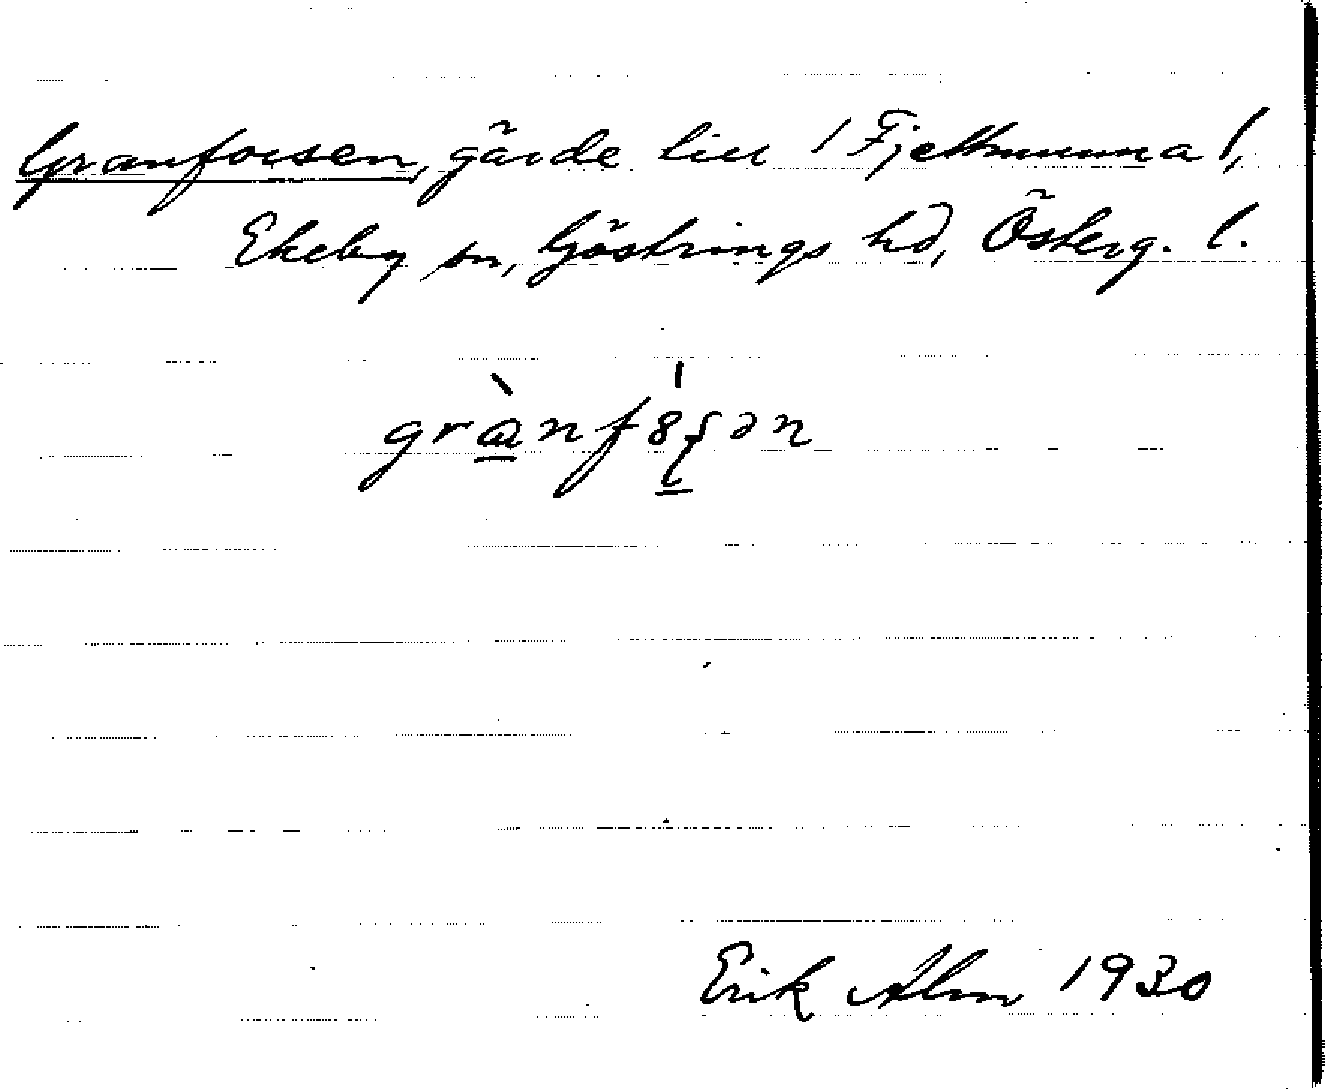 Granforsen, gärde till /Fjellmunna/,
Ekeby sn, Göstrings hd, Österg. l.
grànfȣʂən
Erik Alm 1930